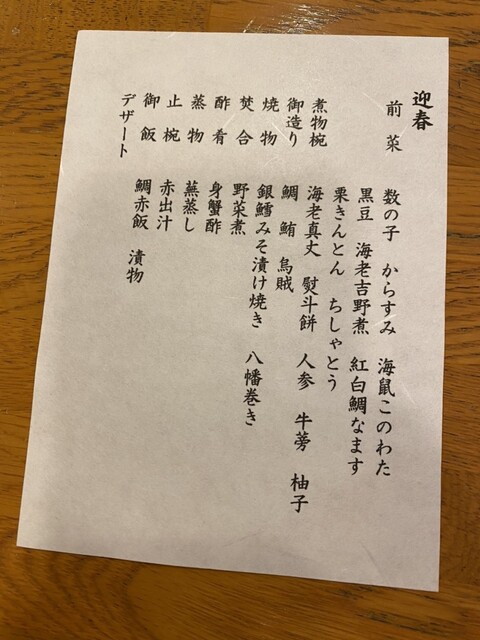 迎春
前菜　数の子　からすみ　海鼠このわた
黒豆　海老吉野煮　紅白鯛なます
栗きんとん　ちしゃとう
煮物椀　海老真丈　熨斗餅　人参　牛蒡　柚子
御造り　鯛　鮪　烏賊
焼物　銀鱈みそ漬け焼き　八幡巻き
焚合　野菜煮
酢肴　身蟹酢
蒸物　蕪蒸し
止椀　赤出汁
御飯　鯛赤飯　漬物
デザート